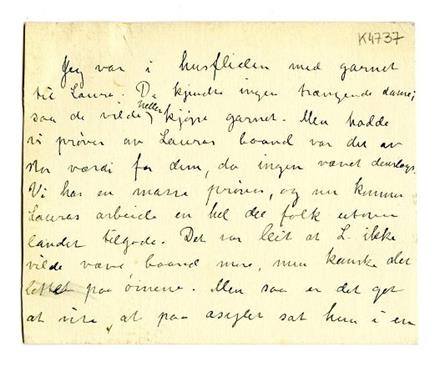 K4737
Jeg var i husfliden med garnet
til Laura. De kjendte ingen trængende dame;
saa de vilde heller kjøpe garnet. Men hadde
vi prøver av Lauras baand var det av
stor værdi for dem, da ingen vævet denslags.
Vi har en masse prøver, og nu kommer
Lauras arbeide en hel del folk utover
landet tilgode. Det var leit at L. ikke
vilde væve baand mere, men kanske det
paa øinene. Men saa er det got
at vite, at paa asylet sat hun i en